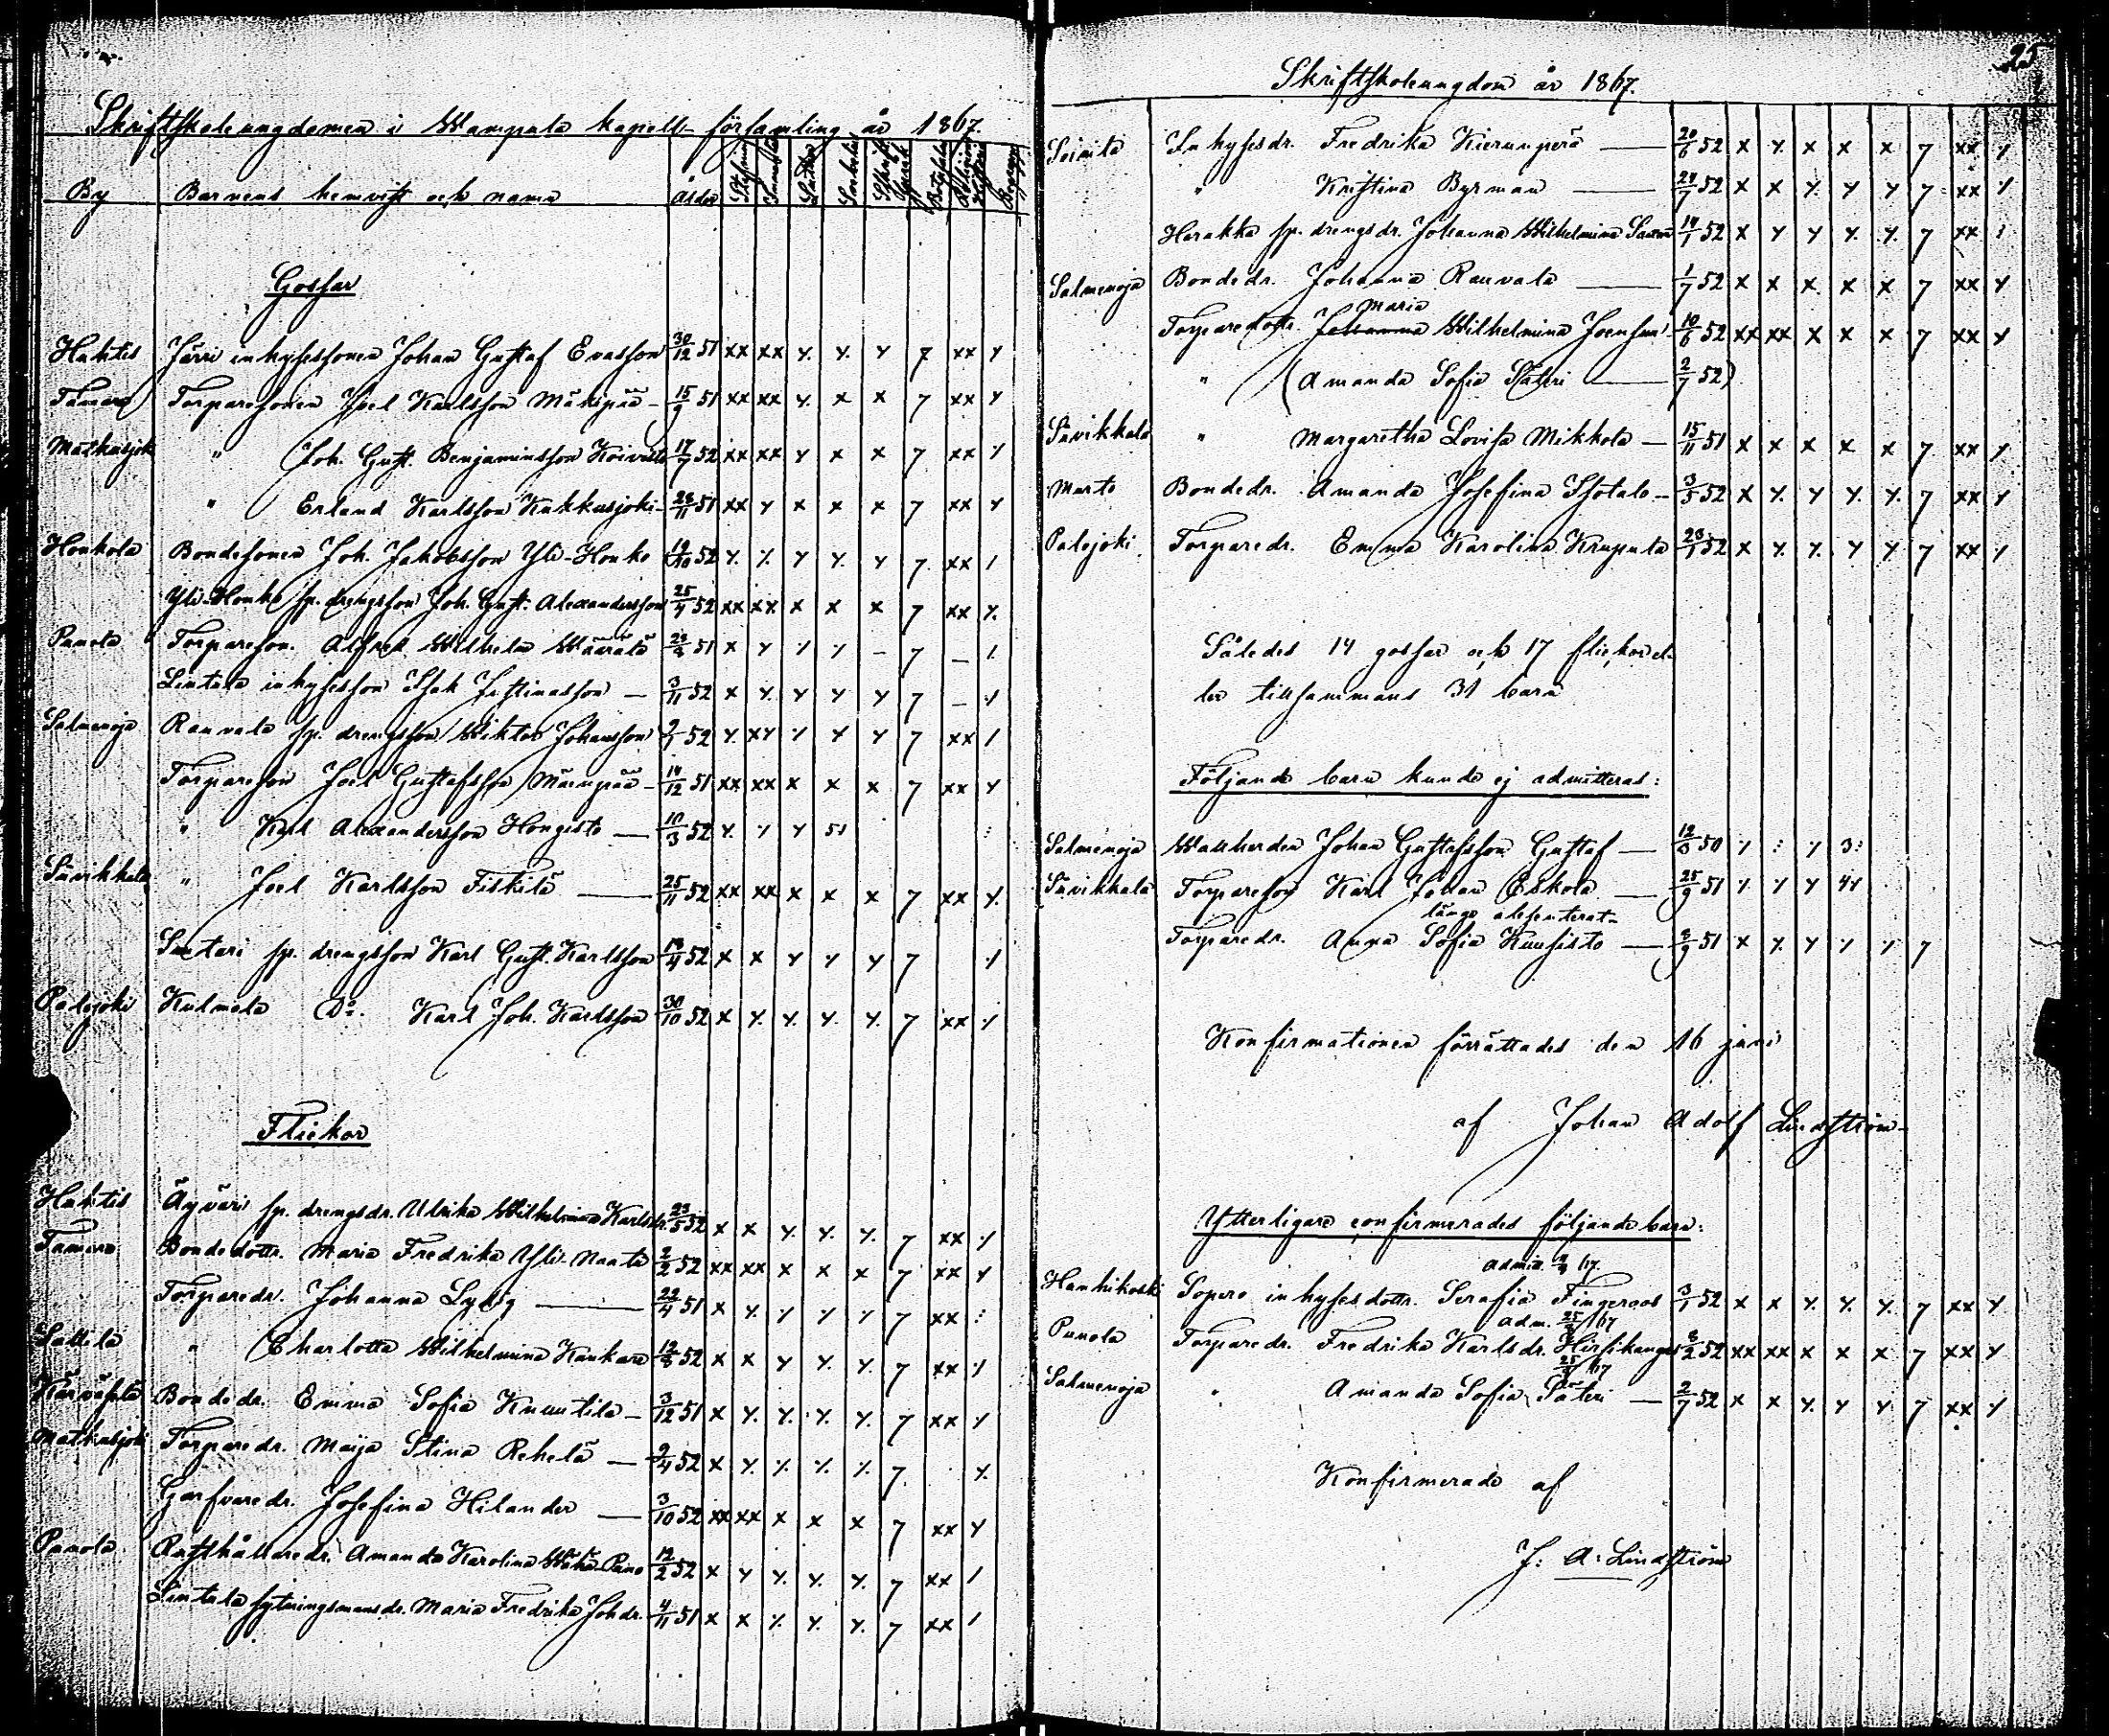 Skriftskoleungdomen i Wampula kapell-församling år 1867.
By Barnens hemvist och namn ålder
Gossar
Huhtis Järvi inhysessonen Johan Gustaf Evasson 30/12 51 xx xx x x x 7 xx x
Tamare Torparesonen Joel Karlsson Mäkipää - 15/9 51 xx xx x x x 7 xx x
Matkusjoki " Joh. Gust. Benjaminsson Koivisto 17/7 52 xx xx x x x 7 xx /
" Erland Karlsson Kukkusjoki - 28/11 51 xx x x x x 7 xx x
Honkola Bondesonen Joh. Jakobsson Yli-Honko 19/10 52 x x x x x 7 xx /
Yli-Honko sp. drengsson Joh. Gust. Alexandersson 25/4 52 xx xx x x x 7 xx x
Punola Torpareson. Alfred Wilhelm Määrälä 51 x x / / - 7 - /
Lintula inhysesson Isak Justinasson - 3/11 52 x x x x x 7 - /
Salmenoja Rauvala sp. drengsson Wiktor Johansson 52 x xx / x x 7 xx /
Torpareson Joel Gustafsson Mäenpää - 14/12 51 xx xx x x x 7 xx x
" Karl Alexandersson Hongisto — 10/3 52 x / x 5/
Sävikkala " Joel Karlsson Fiskilä — 25/11 52 xx xx x x x 7 xx x
Suutari sp. drengsson Karl Gust. Karlsson 52 x x x x x 7 /
Palojoki Kulmala Do. Karl Joh. Karlsson 30/10 52 x x x x x 7 xx /
Flickor
Huhtis Äyväri sp. drengsdr. Ulrika Wilhelmina Karlsdr. 23/5 52 x x x x x 7 xx /
Tamare Bondedottr. Maria Fredrika Yli-Naata 2/2 52 xx xx x x x 7 xx x
Torparedr. Johanna — 22/4 51 x x / / / 7 xx :
Sallila " Charlotta Wilhelmina Kankare 12/8 52 x x x x x 7 xx /
Kärväselä Bondedr. Emma Sofia Knuutila - 3/12 51 x x x x x 7 xx /
Matkusjoki Torparedr. Maija Stina Rekelä — 9/4 52 x x x x x 7 x
Garfvaredr. Josefina Hilander — 3/10 52 xx xx x x x 7 xx x
Punola Rusthållaredr. Amanda Karolina Wähä-Puno 12/2 52 x x x x x 7 xx /
Lintula sytningsmansdr. Maria Fredrika Johdr. 4/11 51 x x x x x 7 xx /
25
Skriftskoleungdom år 1867.
Soinila Inhysesdr. Fredrika Kierunperä — 20/6 52 x x x x x 7 xx /
" Kristina Byrman — 24/7 52 x x x x x 7 xx /
Harakka sp. drengsdr. Johanna Wilhelmina 14/1 52 x x x x x 7 xx :
Salmenoja Bondedr. Johanna Rauvala — 1/7 52 x x x x x 7 xx x
Maria
Torparedottr. Johanna Wilhelmina Joensuu 10/6 52 xx xx x x x 7 xx x
" (Amanda Sofia Säteri — 2/7 52)
Sävikkala " Margaretha Lovisa Mikkola — 15/11 51 x x x x x 7 xx /
Marto Bondedr. Amanda Josefina Isotalo - 3/5 52 x x x x x 7 xx x
Palojoki Torparedr. Emma Karolina Krupula 23/1 52 x x x x x 7 xx /
Således 14 gossar och 17 flickor el-
ler tillsammans 31 barn
Följande barn kunde ej admitteras:
Salmenoja Wallherden Johan Gustafsson Gustaf — 12/3 50 / : / 3:
Sävikkala Torpareson Karl Johan Eskola — 25/9 51 / / x 4x
länge absenterat
Torparedr. Anna Sofia Kuusisto — 51 x x x / / 7
Konfirmationen förrättades den 16 juni
af Johan Adolf Lindström
Ytterligare confirmerades följande barn:
admit. 67.
Hanhikoski Sopero inhysesdottr. Serafia Fingerroos 3/1 52 x x x x x 7 xx x
adm. 25/ 67
Punola Torparedr. Fredrika Karlsdr. Hirsikangas 8/2 52 xx xx x x x 7 xx x
25/ 67
Salmenoja " Amanda Sofia Säteri — 2/7 52 x x x x x 7 xx /
Konfirmerade af
J. A. Lindström